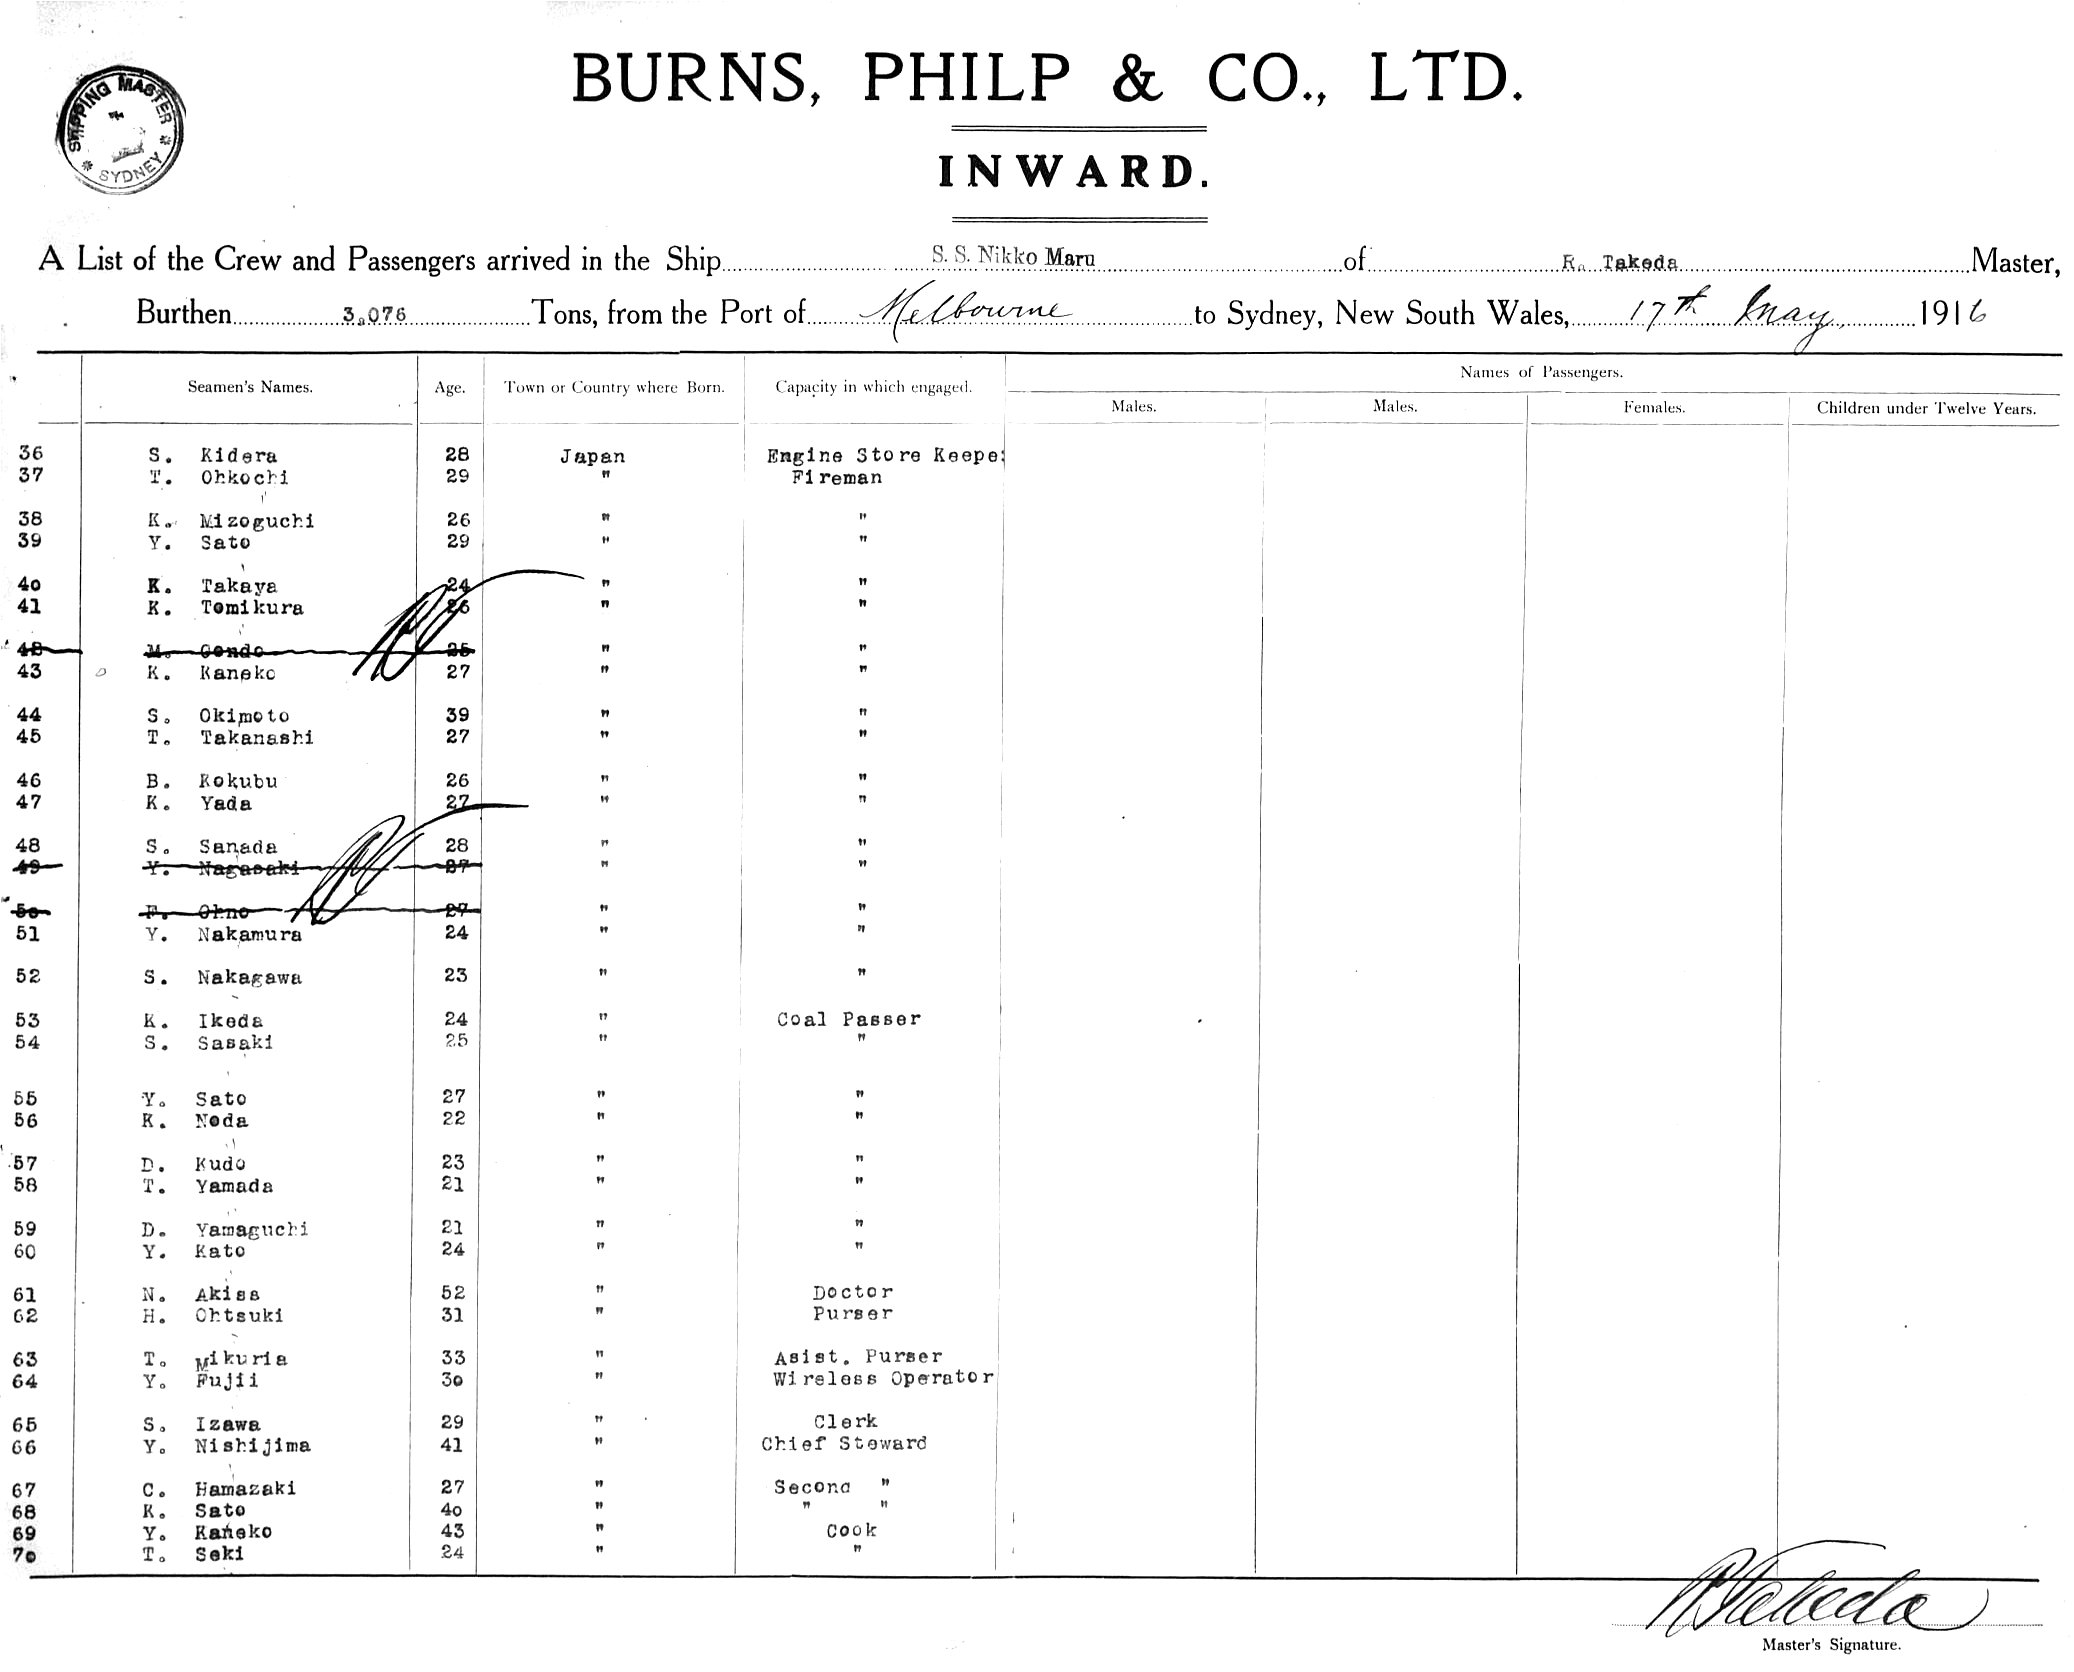 BURNS, PHILP & CO., LTD.
SHIPPING MASTER
* SYDNEY *
INWARD.
A List of the Crew and Passengers arrived in the Ship S. S. Nikko Maru of R. Takeda Master,
Burthen 3,076 Tons, from the Port of Melbourne to Sydney, New South Wales, 17th May, 1916
Seamen's Names. Age. Town or Country where Born. Capacity in which engaged. Names of Passengers.
Males. Males. Females. Children under Twelve Years.
36 S. Kidera 28 Japan Engine Store Keeper
37 T. Ohkochi 29 " Fireman
38 K. Mizoguchi 26 " "
39 Y. Sato 29 " "
40 K. Takaya 24 " "
41 K. Tomikura 26 " "
42 M. Gondo 25 " "
43 K. Kaneko 27 " "
44 S. Okimoto 39 " "
45 T. Takanashi 27 " "
46 B. Kokubu 26 " "
47 K. Yada 27 " "
48 S. Sanada 28 " "
49 Y. Nagasaki 27 " "
50 F. Ohno 27 " "
51 Y. Nakamura 24 " "
52 S. Nakagawa 23 " "
53 K. Ikeda 24 " Coal Passer
54 S. Sasaki 25 " "
55 Y. Sato 27 " "
56 K. Noda 22 " "
57 D. Kudo 23 " "
58 T. Yamada 21 " "
59 D. Yamaguchi 21 " "
60 Y. Kato 24 " "
61 N. Akisa 52 " Doctor
62 H. Ohtsuki 31 " Purser
63 T. Mikuria 33 " Asist. Purser
64 Y. Fujii 30 " Wireless Operator
65 S. Izawa 29 " Clerk
66 Y. Nishijima 41 " Chief Steward
67 C. Hamazaki 27 " Second "
68 K. Sato 40 " " "
69 Y. Kaneko 43 " Cook
70 T. Seki 24 " "
R Takeda
Master's Signature.